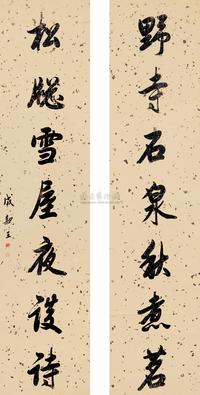 野寺石泉秋煮茗
松牕雪屋夜談詩
成親王